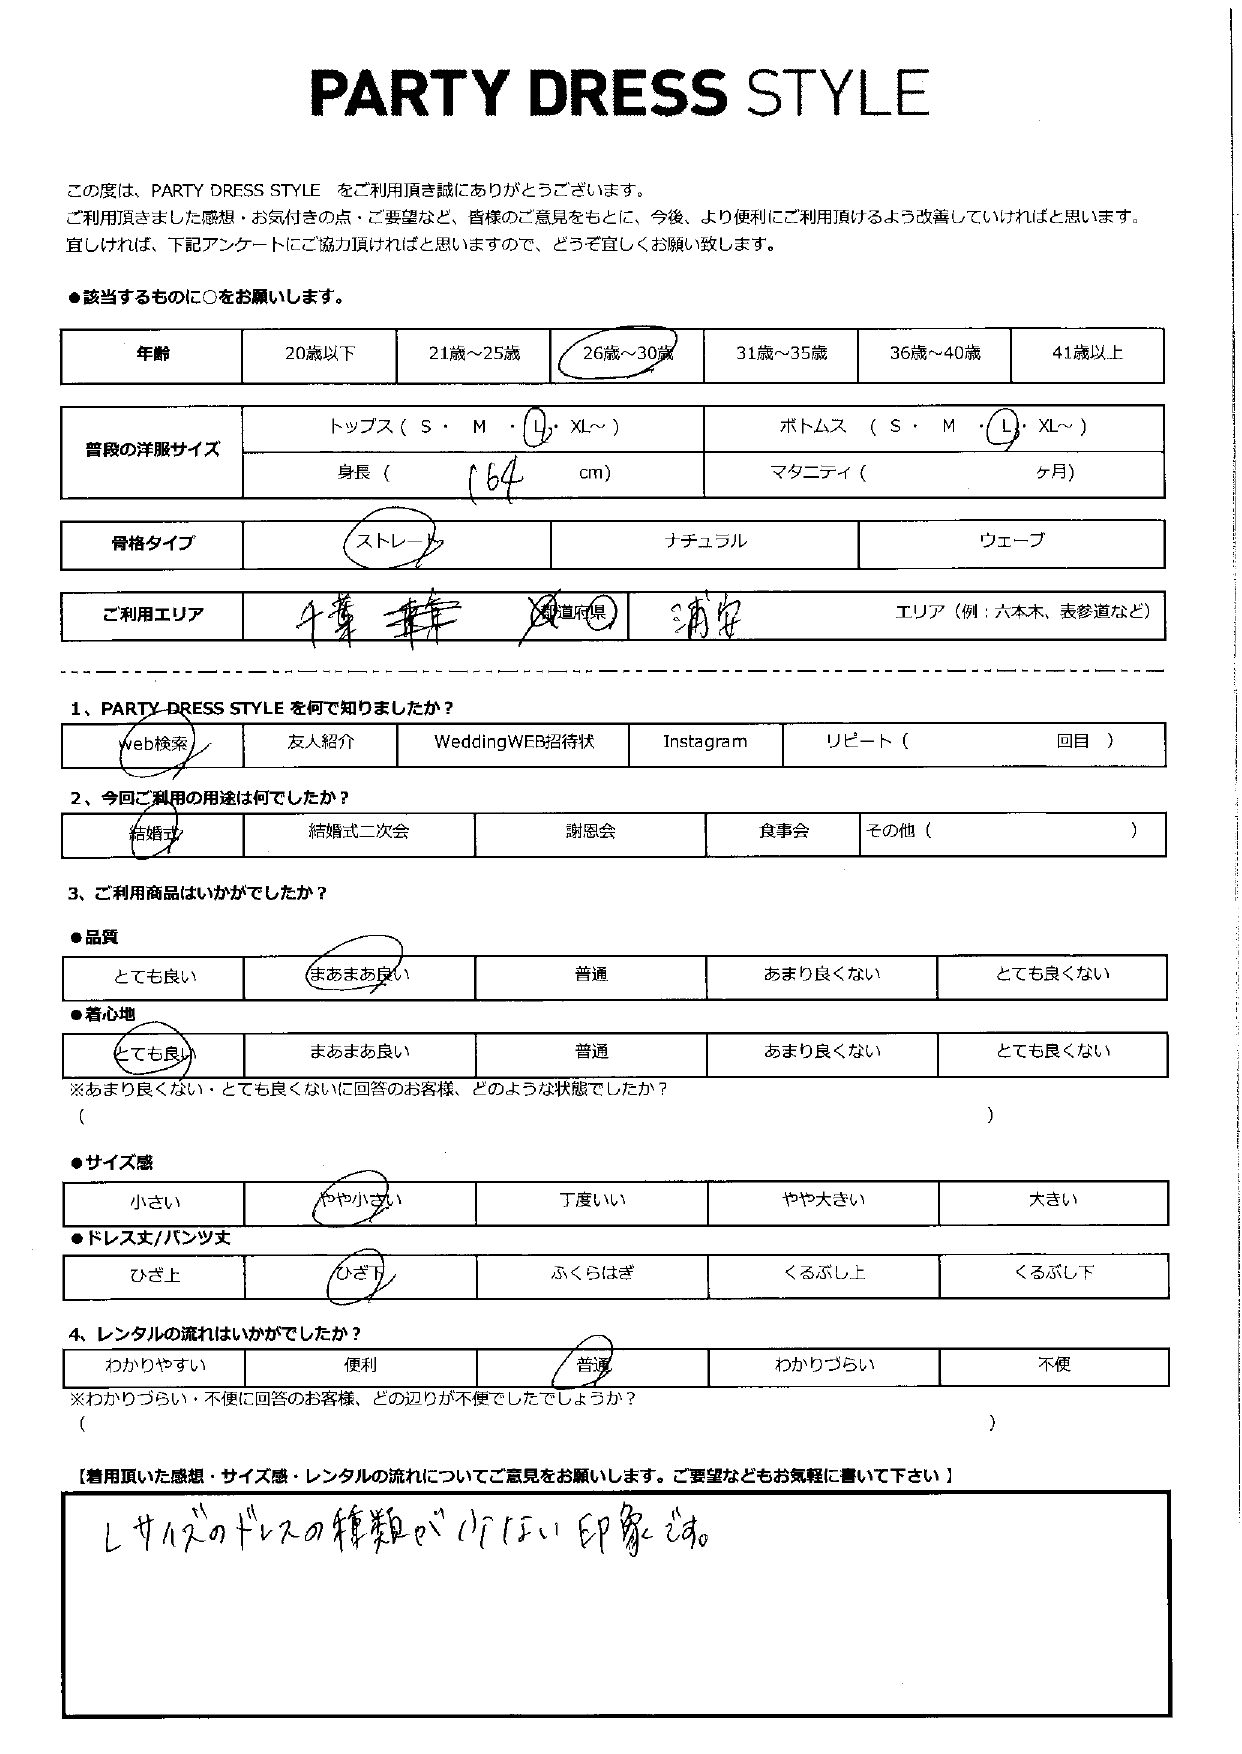 PARTY DRESS STYLE
この度は、PARTY DRESS STYLE　をご利用頂き誠にありがとうございます。
ご利用頂きました感想・お気付きの点・ご要望など、皆様のご意見をもとに、今後、より便利にご利用頂けるよう改善していければと思います。
宜しければ、下記アンケートにご協力頂ければと思いますので、どうぞ宜しくお願い致します。
●該当するものに○をお願いします。
年齢 20歳以下 21歳～25歳 26歳～30歳 31歳～35歳 36歳～40歳 41歳以上
普段の洋服サイズ トップス ( S ・ M ・ L ・ XL～ ) ボトムス ( S ・ M ・ L ・ XL～ )
身長 ( 164 cm) マタニティ ( ヶ月)
骨格タイプ ストレート ナチュラル ウェーブ
ご利用エリア 千葉 都道府県 浦安 エリア（例：六本木、表参道など）
1、PARTY DRESS STYLE を何で知りましたか？
web検索 友人紹介 WeddingWEB招待状 Instagram リピート ( 回目 )
2、今回ご利用の用途は何でしたか？
結婚式 結婚式二次会 謝恩会 食事会 その他 ( )
3、ご利用商品はいかがでしたか？
●品質
とても良い まあまあ良い 普通 あまり良くない とても良くない
●着心地
とても良い まあまあ良い 普通 あまり良くない とても良くない
※あまり良くない・とても良くないに回答のお客様、どのような状態でしたか？
( )
●サイズ感
小さい やや小さい 丁度いい やや大きい 大きい
●ドレス丈/パンツ丈
ひざ上 ひざ下 ふくらはぎ くるぶし上 くるぶし下
4、レンタルの流れはいかがでしたか？
わかりやすい 便利 普通 わかりづらい 不便
※わかりづらい・不便に回答のお客様、どの辺りが不便でしたでしょうか？
( )
【着用頂いた感想・サイズ感・レンタルの流れについてご意見をお願いします。ご要望などもお気軽に書いて下さい 】
Lサイズのドレスの種類が少ない印象です。